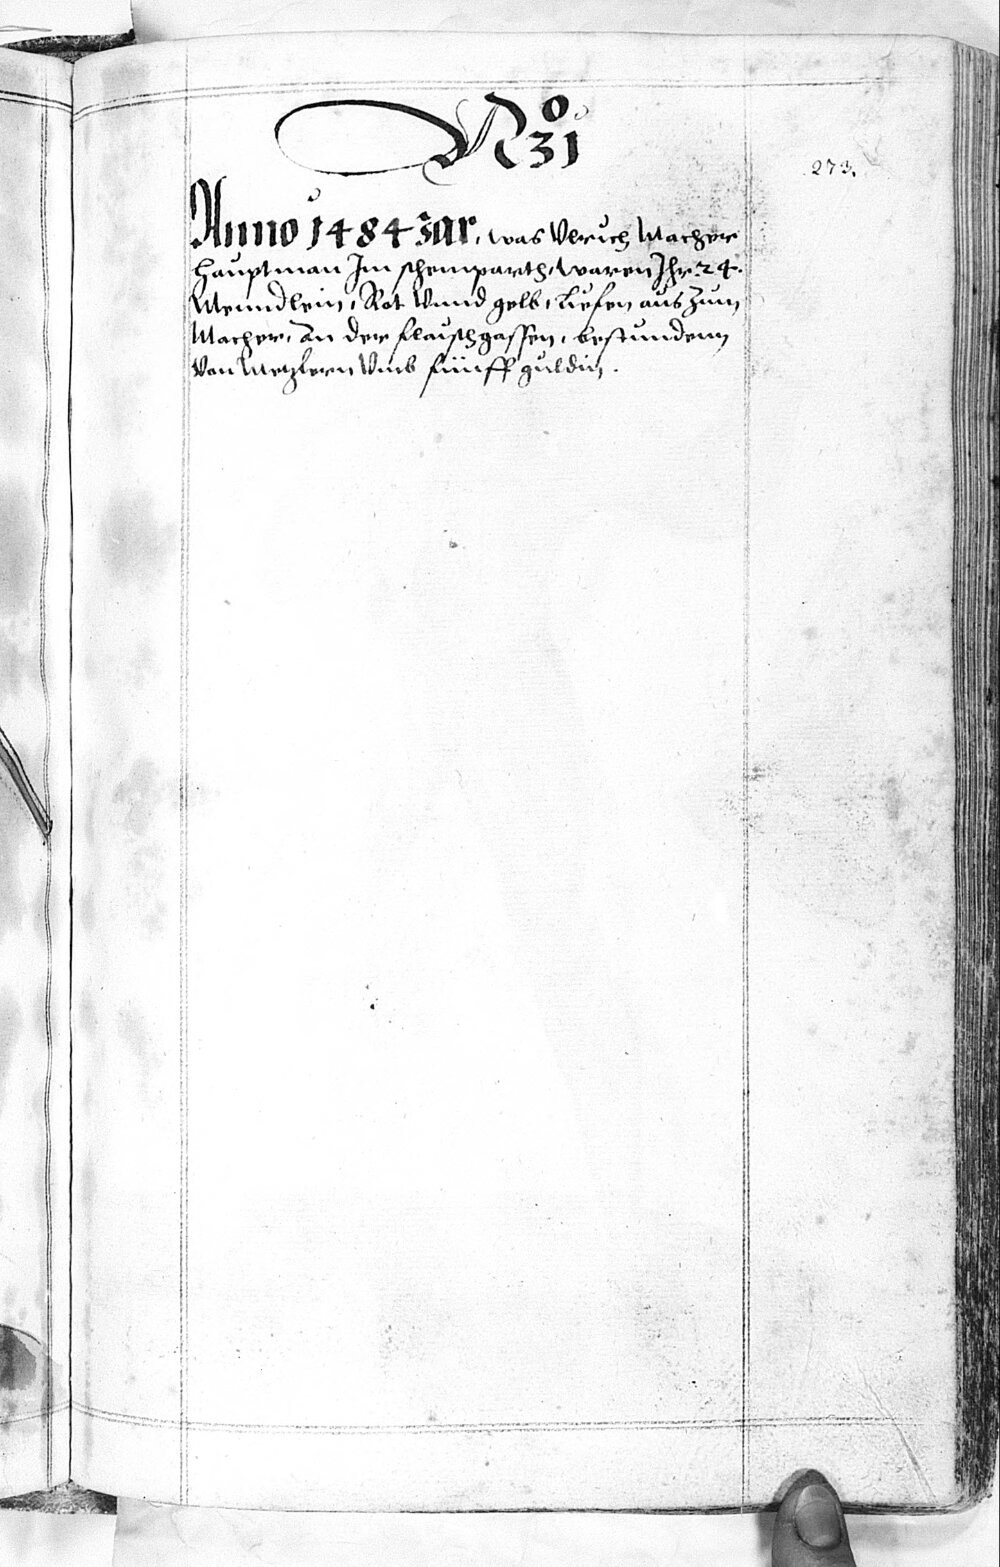 No 31
273.
Anno 1484 Jar, was Vlrich Macher
Hauptman Im schemparth, waren Ihr 24.
Menndlein, Rot Vnnd gelb, Liefen aus Zum
Macher, An der flaischgassen, bestundenn
Von Metzlern Vmb fünff guldin.